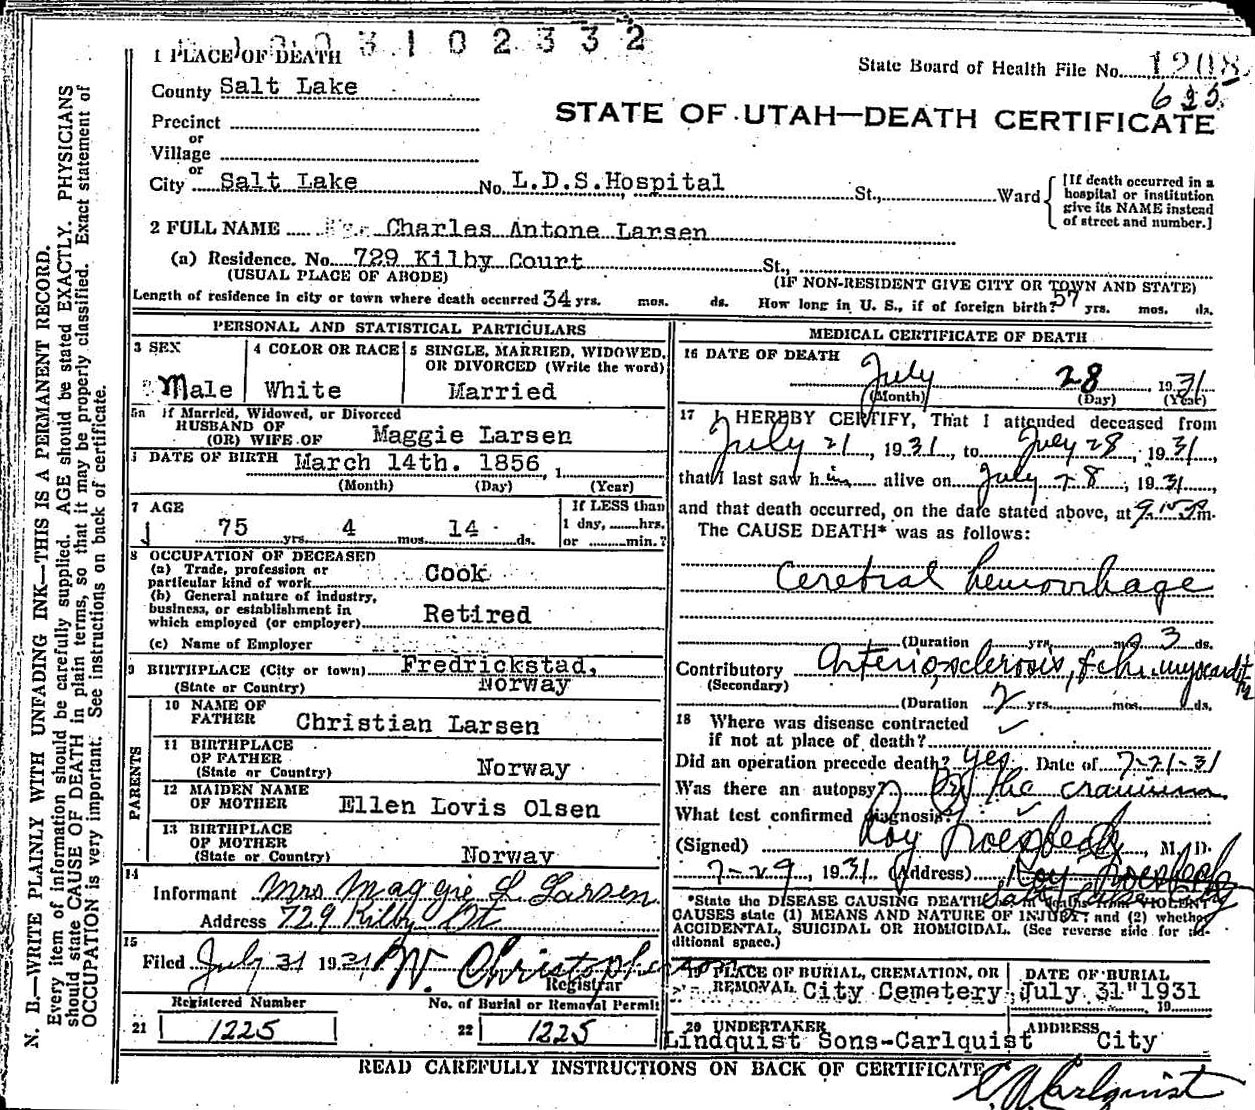 3102332
1 PLACE OF DEATH
State Board of Health File No. 1208
625
County Salt Lake
STATE OF UTAH—DEATH CERTIFICATE
Precinct
or
Village
or
City Salt Lake No. L.D.S.Hospital St., Ward
[If death occurred in a hospital or institution give its NAME instead of street and number.]
2 FULL NAME Charles Antone Larsen
(a) Residence. No. 729 Kilby Court St.,
(USUAL PLACE OF ABODE) (IF NON-RESIDENT GIVE CITY OR TOWN AND STATE)
Length of residence in city or town where death occurred 34 yrs. mos. ds. How long in U. S., if of foreign birth? 57 yrs. mos. ds.
PERSONAL AND STATISTICAL PARTICULARS
3 SEX
Male
4 COLOR OR RACE
White
5 SINGLE, MARRIED, WIDOWED, OR DIVORCED (Write the word)
Married
5a If Married, Widowed, or Divorced
HUSBAND OF
(OR) WIFE OF Maggie Larsen
DATE OF BIRTH March 14th. 1856, 1
(Month) (Day) (Year)
7 AGE
75 yrs. 4 mos. 14 ds.
If LESS than
1 day, hrs.
or min.?
8 OCCUPATION OF DECEASED
(a) Trade, profession or
particular kind of work Cook
(b) General nature of industry,
business, or establishment in
which employed (or employer) Retired
(c) Name of Employer
9 BIRTHPLACE (City or town) Fredrickstad,
(State or Country) Norway
PARENTS
10 NAME OF
FATHER Christian Larsen
11 BIRTHPLACE
OF FATHER
(State or Country) Norway
12 MAIDEN NAME
OF MOTHER Ellen Lovis Olsen
13 BIRTHPLACE
OF MOTHER
(State or Country) Norway
14
Informant Mrs Maggie L. Larsen
Address 729 Kilby Ct
15
Filed July 31 1931 W. Christopherson
Registrar
Registered Number
21 1225
No. of Burial or Removal Permit
22 1225
MEDICAL CERTIFICATE OF DEATH
16 DATE OF DEATH
July 28, 1931
(Month) (Day) (Year)
17 I HEREBY CERTIFY, That I attended deceased from
July 21, 1931, to July 28, 1931,
that I last saw him alive on July 28, 1931,
and that death occurred, on the date stated above, at m.
The CAUSE DEATH* was as follows:
Cerebral hemorrhage
(Duration yrs. mos. 3 ds.
Contributory Arteriosclerosis, & chr. myocarditis
(Secondary)
(Duration 2 yrs. mos. ds.
18 Where was disease contracted
if not at place of death?
Did an operation precede death? yes Date of 7-21-31
Was there an autopsy? the cranium
What test confirmed diagnosis?
(Signed) Roy, M. D.
7-29, 1931. (Address)
*State the DISEASE CAUSING DEATH VIOLENT
CAUSES state (1) MEANS AND NATURE OF INJURY; and (2) whether
ACCIDENTAL, SUICIDAL OR HOMICIDAL. (See reverse side for ad-
ditional space.)
19 PLACE OF BURIAL, CREMATION, OR
REMOVAL City Cemetery
DATE OF BURIAL
July 31" 1931
19
20 UNDERTAKER
Lindquist Sons-Carlquist
ADDRESS
City
READ CAREFULLY INSTRUCTIONS ON BACK OF CERTIFICATE
Carlquist
N. B.—WRITE PLAINLY WITH UNFADING INK—THIS IS A PERMANENT RECORD.
Every item of information should be carefully supplied. AGE should be stated EXACTLY. PHYSICIANS
should state CAUSE OF DEATH in plain terms, so that it may be properly classified. Exact statement of
OCCUPATION is very important. See instructions on back of certificate.